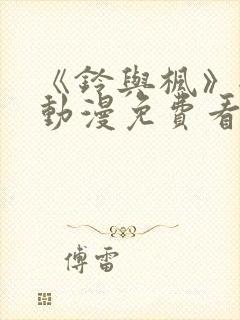 《鈴與楓》
動漫免費看
傅雷